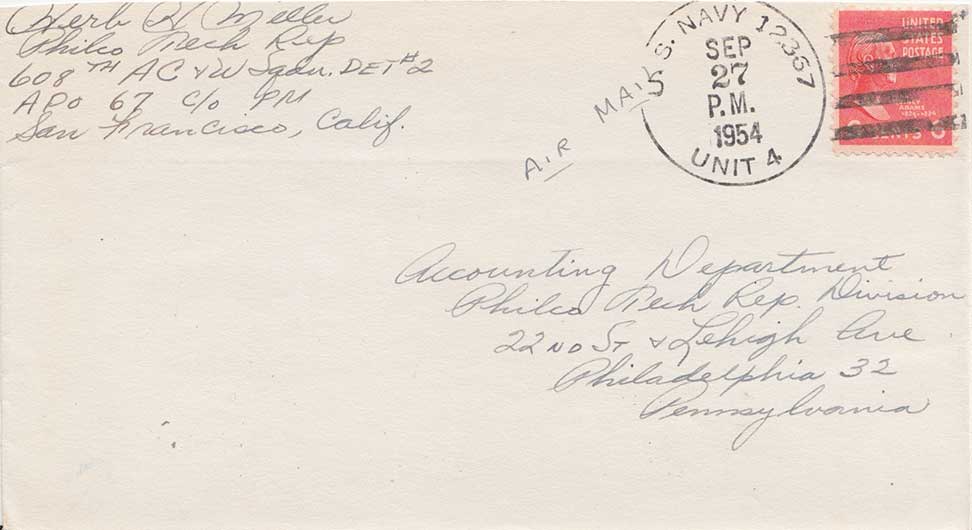 Herb H Miller
Philco Tech Rep
608TH AC & W Sqdn. DET #2
APO 67 c/o PM
San Francisco, Calif.
AIR MAIL
U.S. NAVY 12367
SEP
27
P.M.
1954
UNIT 4
UNITED
STATES
POSTAGE
ADAMS
6 CENTS 6
Accounting Department
Philco Tech Rep. Division
22ND ST & Lehigh Ave
Philadelphia 32
Pennsylvania